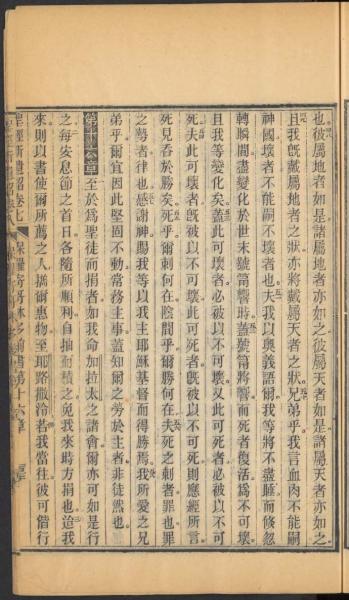 也彼屬地者如是諸屬地者亦如之彼屬天者如是諸屬天者亦如之
且我旣戴屬地者之狀亦將戴屬天者之狀兄弟乎我言血肉不能嗣
神國壞者不能嗣不壞者也夫我以奧義語爾我等將不盡睡而倏忽
轉瞬間盡變化於世末號筩響時蓋號筩將響而死者復活爲不可壞
且我等變化矣蓋此可壞者必被以不可壞又此可死者必被以不可
死夫此可壞者旣被以不可壞此可死者旣被以不可死則應經所言
死見吞於勝矣死乎爾刺何在陰間乎爾勝何在夫死之刺者罪也罪
之勢者律也感謝神賜我等以我主耶穌基督而得勝焉我所愛之兄
弟乎爾宜因此堅固不動常務主事蓋知爾之勞於主者非徒然也
第十六章至於爲聖徒而捐者如我命加拉太之諸會爾亦可如是行
之每安息節之首日各隨所順利自抽而積之免我來時方捐也迨我
來則以書使爾所薦之人攜爾惠物至耶路撒冷若我當往彼可偕行
聖經新遺詔卷七 保羅寄哥林多前書第十六章